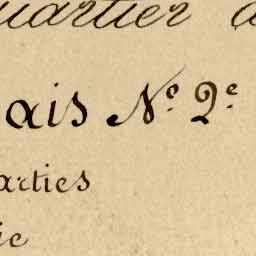 uartier d
ais Nº 2ᵉ
arties
ie